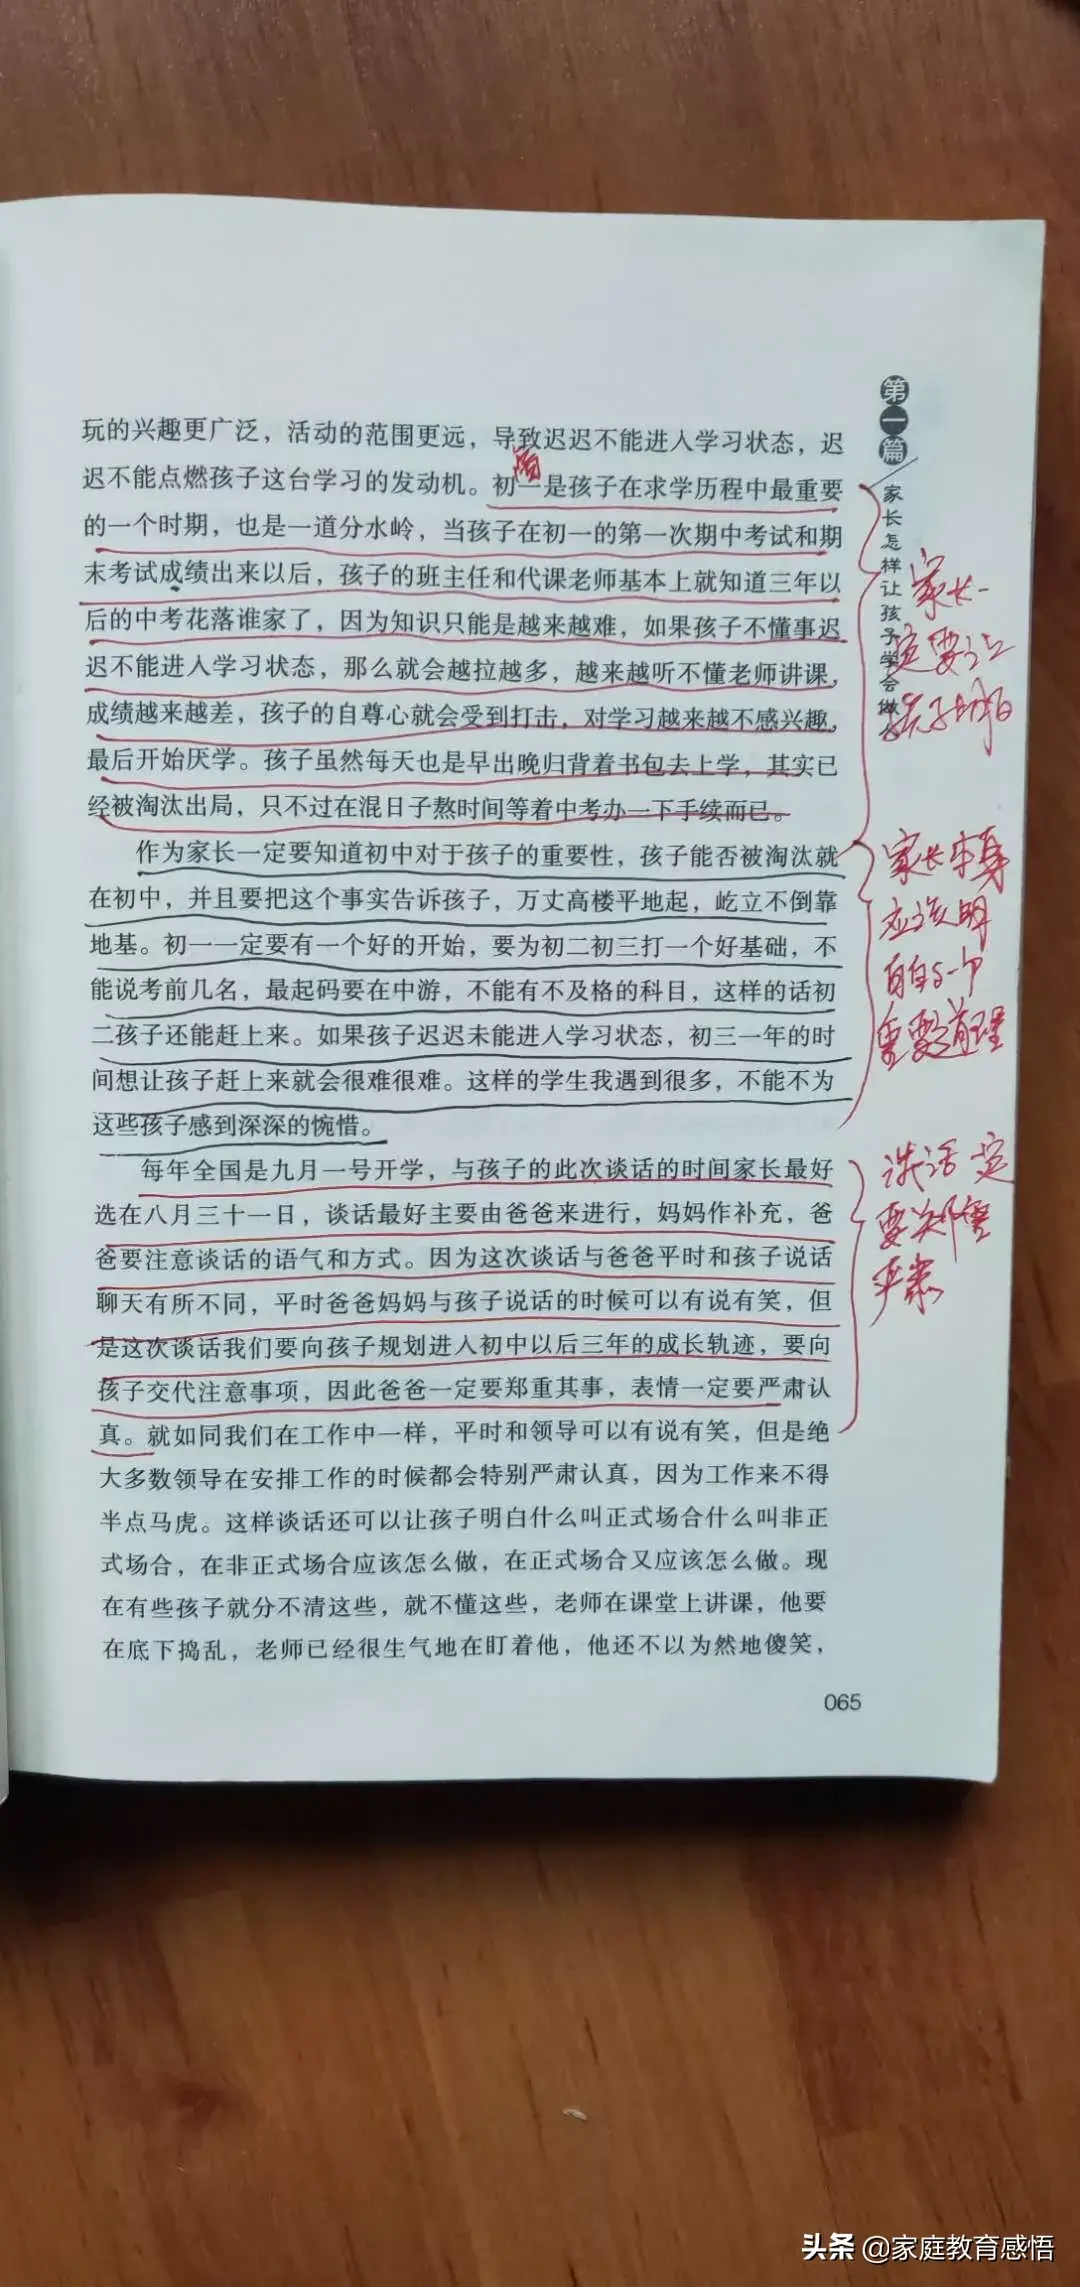 第一篇
家长怎样让孩子学会做人
玩的兴趣更广泛，活动的范围更远，导致迟迟不能进入学习状态，迟
迟不能点燃孩子这台学习的发动机。初一是孩子在求学历程中最重要
的一个时期，也是一道分水岭，当孩子在初一的第一次期中考试和期
末考试成绩出来以后，孩子的班主任和代课老师基本上就知道三年以
后的中考花落谁家了，因为知识只能是越来越难，如果孩子不懂事迟
迟不能进入学习状态，那么就会越拉越多，越来越听不懂老师讲课，
成绩越来越差，孩子的自尊心就会受到打击，对学习越来越不感兴趣，
最后开始厌学。孩子虽然每天也是早出晚归背着书包去上学，其实已
经被淘汰出局，只不过在混日子熬时间等着中考办一下手续而已。
作为家长一定要知道初中对于孩子的重要性，孩子能否被淘汰就
在初中，并且要把这个事实告诉孩子，万丈高楼平地起，屹立不倒靠
地基。初一一定要有一个好的开始，要为初二初三打一个好基础，不
能说考前几名，最起码要在中游，不能有不及格的科目，这样的话初
二孩子还能赶上来。如果孩子迟迟未能进入学习状态，初三一年的时
间想让孩子赶上来就会很难很难。这样的学生我遇到很多，不能不为
这些孩子感到深深的惋惜。
每年全国是九月一号开学，与孩子的此次谈话的时间家长最好
选在八月三十一日，谈话最好主要由爸爸来进行，妈妈作补充，爸
爸要注意谈话的语气和方式。因为这次谈话与爸爸平时和孩子说话
聊天有所不同，平时爸爸妈妈与孩子说话的时候可以有说有笑，但
是这次谈话我们要向孩子规划进入初中以后三年的成长轨迹，要向
孩子交代注意事项，因此爸爸一定要郑重其事，表情一定要严肃认
真。就如同我们在工作中一样，平时和领导可以有说有笑，但是绝
大多数领导在安排工作的时候都会特别严肃认真，因为工作来不得
半点马虎。这样谈话还可以让孩子明白什么叫正式场合什么叫非正
式场合，在非正式场合应该怎么做，在正式场合又应该怎么做。现
在有些孩子就分不清这些，就不懂这些，老师在课堂上讲课，他要
在底下捣乱，老师已经很生气地在盯着他，他还不以为然地傻笑，
家长一
定要让
孩子明白
家长本身
应该明
白这一个
重要道理
谈话一定
要郑重
严肃
065
头条 @家庭教育感悟